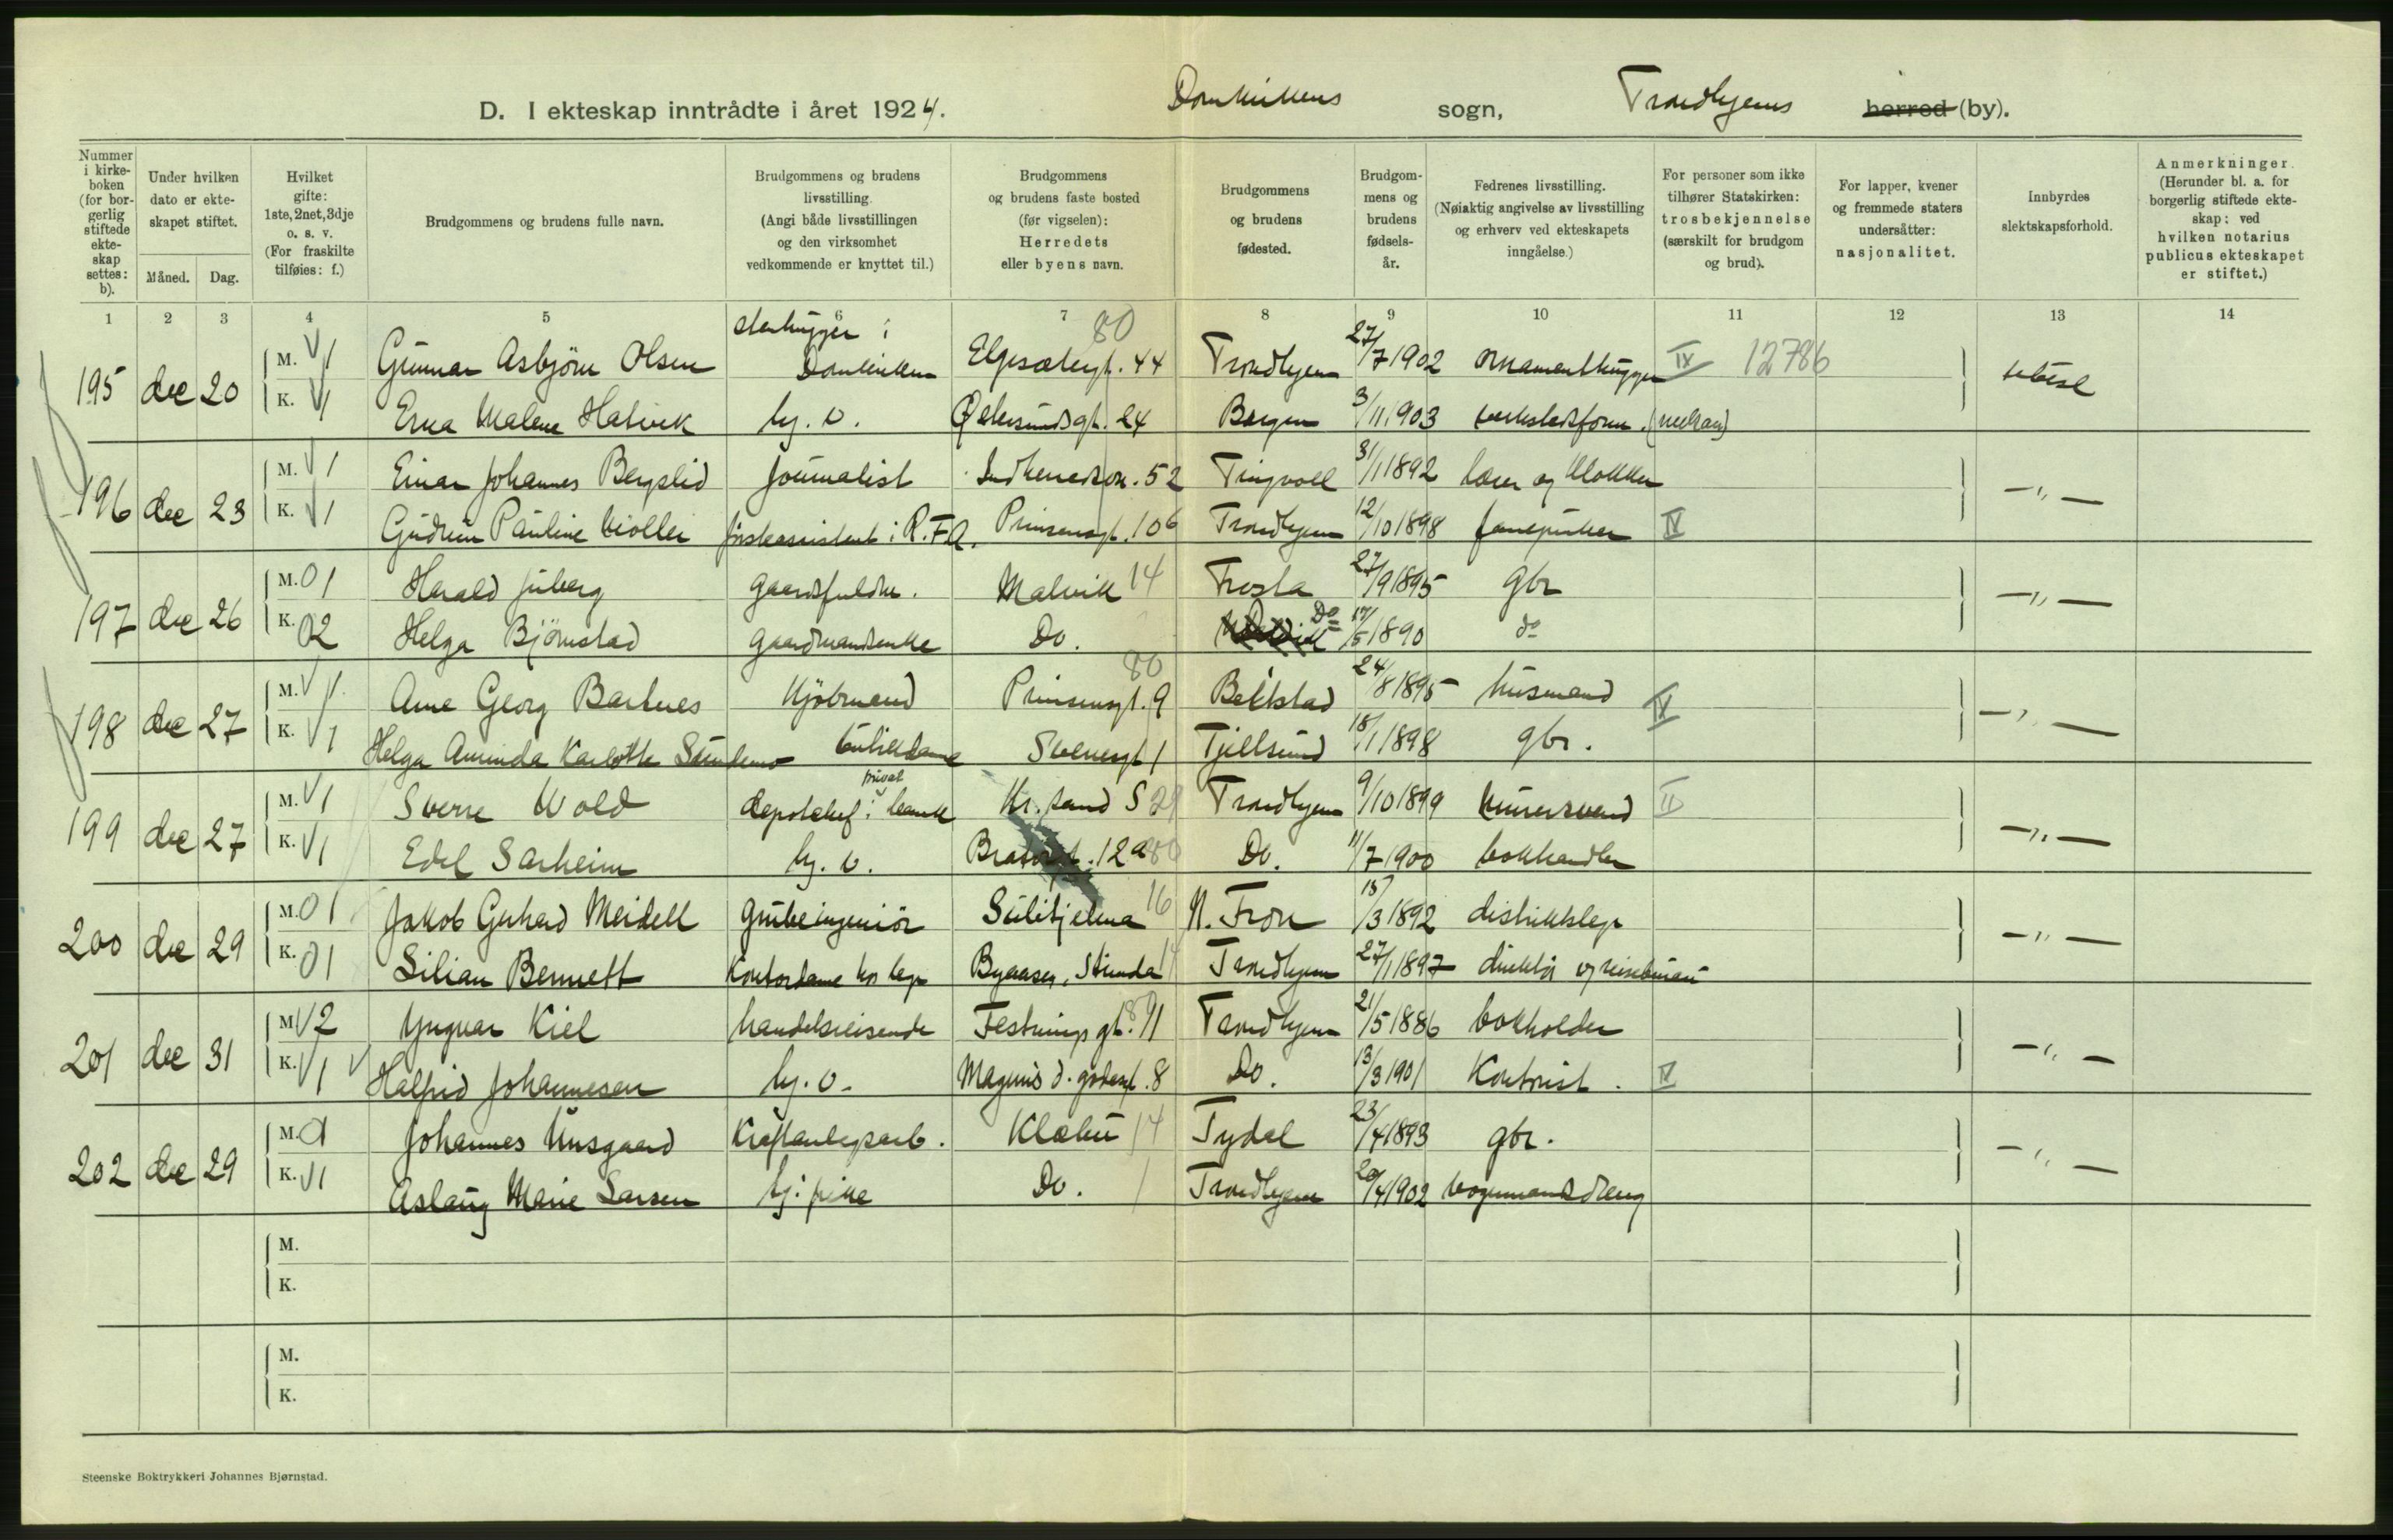 D. I ekteskap inntrådte i året 1924. Domkirkens sogn, Trondhjems herred (by).
Nummer i kirkeboken (for borgerlig stiftede ekteskap settes: b).
Under hvilken dato er ekteskapet stiftet.
Måned. Dag.
Hvilket gifte: 1ste, 2net, 3dje o. s. v. (For fraskilte tilføies: f.)
Brudgommens og brudens fulle navn.
Brudgommens og brudens livsstilling. (Angi både livsstillingen og den virksomhet vedkommende er knyttet til.)
Brudgommens og brudens faste bosted (før vigselen): Herredets eller byens navn.
Brudgommens og brudens fødested.
Brudgommens og brudens fødselsår.
Fedrenes livsstilling. (Nøiaktig angivelse av livsstilling og erhverv ved ekteskapets inngåelse.)
For personer som ikke tilhører Statskirken: trosbekjennelse (særskilt for brudgom og brud).
For lapper, kvener og fremmede staters undersåtter: nasjonalitet.
Innbyrdes slektskapsforhold.
Anmerkninger. (Herunder bl. a. for borgerlig stiftede ekteskap: ved hvilken notarius publicus ekteskapet er stiftet.)
1 2 3 4 5 6 7 8 9 10 11 12 13 14
stenhugger i 80
195 dec 20 M. 1 Gunnar Asbjörn Olsen Domkirken Elgesætergt. 44 Trondhjem 27/7 1902 ornamenthugger IX 12786
K. 1 Erna Malene Hatvik hj. v. Østersundsgt. 24 Bergen 3/11 1903 verkstedsform. (mekan)
196 dec 23 M. 1 Einar Johannes Bergslid journalist Indherredsv. 52 Tingvoll 31/1 1892 lærer og klokker -"-
K. 1 Gudrun Pauline Möller R.T.A. Prinsensgt. 106 Trondhjem 12/10 1898 IV
197 dec 26 M. 01 Harald Juberg gaardsfuldm. Malvik 14 Frosta 27/9 1895 gbr -"-
K. 02 Helga Björnstad gaardmandsenke Do. Do 17/5 1890 do
198 dec 27 M. 1 Arne Georg Bartnes Kjöbmand Prinsensgt. 9 80 Beitstad 24/8 1895 husmand IV -"-
K. 1 Helga Aminda Karlotte butikdame 1 Tjellsund 18/1 1898 gbr.
199 dec 27 M. 1 Sverre Wold depotchef i privat bank Kr.sand S 29 Trondhjem 9/10 1899 murersvend II -"-
K. 1 Edel Sarheim hj. v. 12 a 80 Do. 11/7 1900 bokhandler
200 dec 29 M. 01 Jakob Gerhard Meidell grubeingeniör Sulitjelma 16 N. Fron 18/3 1892 distriktslege -"-
K. 01 Lilian Bennett Kontordame hos lege Byaasen, Strinda 14 Trondhjem 27/1 1897 direktör
201 dec 31 M. 2 Yngvar Kiel handelsreisende Festningsgt. 11 Trondhjem 21/5 1886 bokholder -"-
K. 1 Halfrid Johannesen hj. v. Magnus d. godesgt. 8 Do. 13/3 1901 Kontorist. IV
202 dec 29 M. 01 Johannes Unsgaard Kraftanlegsarb. Klæbu 14 Tydal 23/4 1893 gbr. -"-
K. 1 Aslaug Marie Larsen tj. pike Do. Trondhjem 20/4 1902 vognmandsdreng
M.
K.
M.
K.
Steenske Boktrykkeri Johannes Bjørnstad.